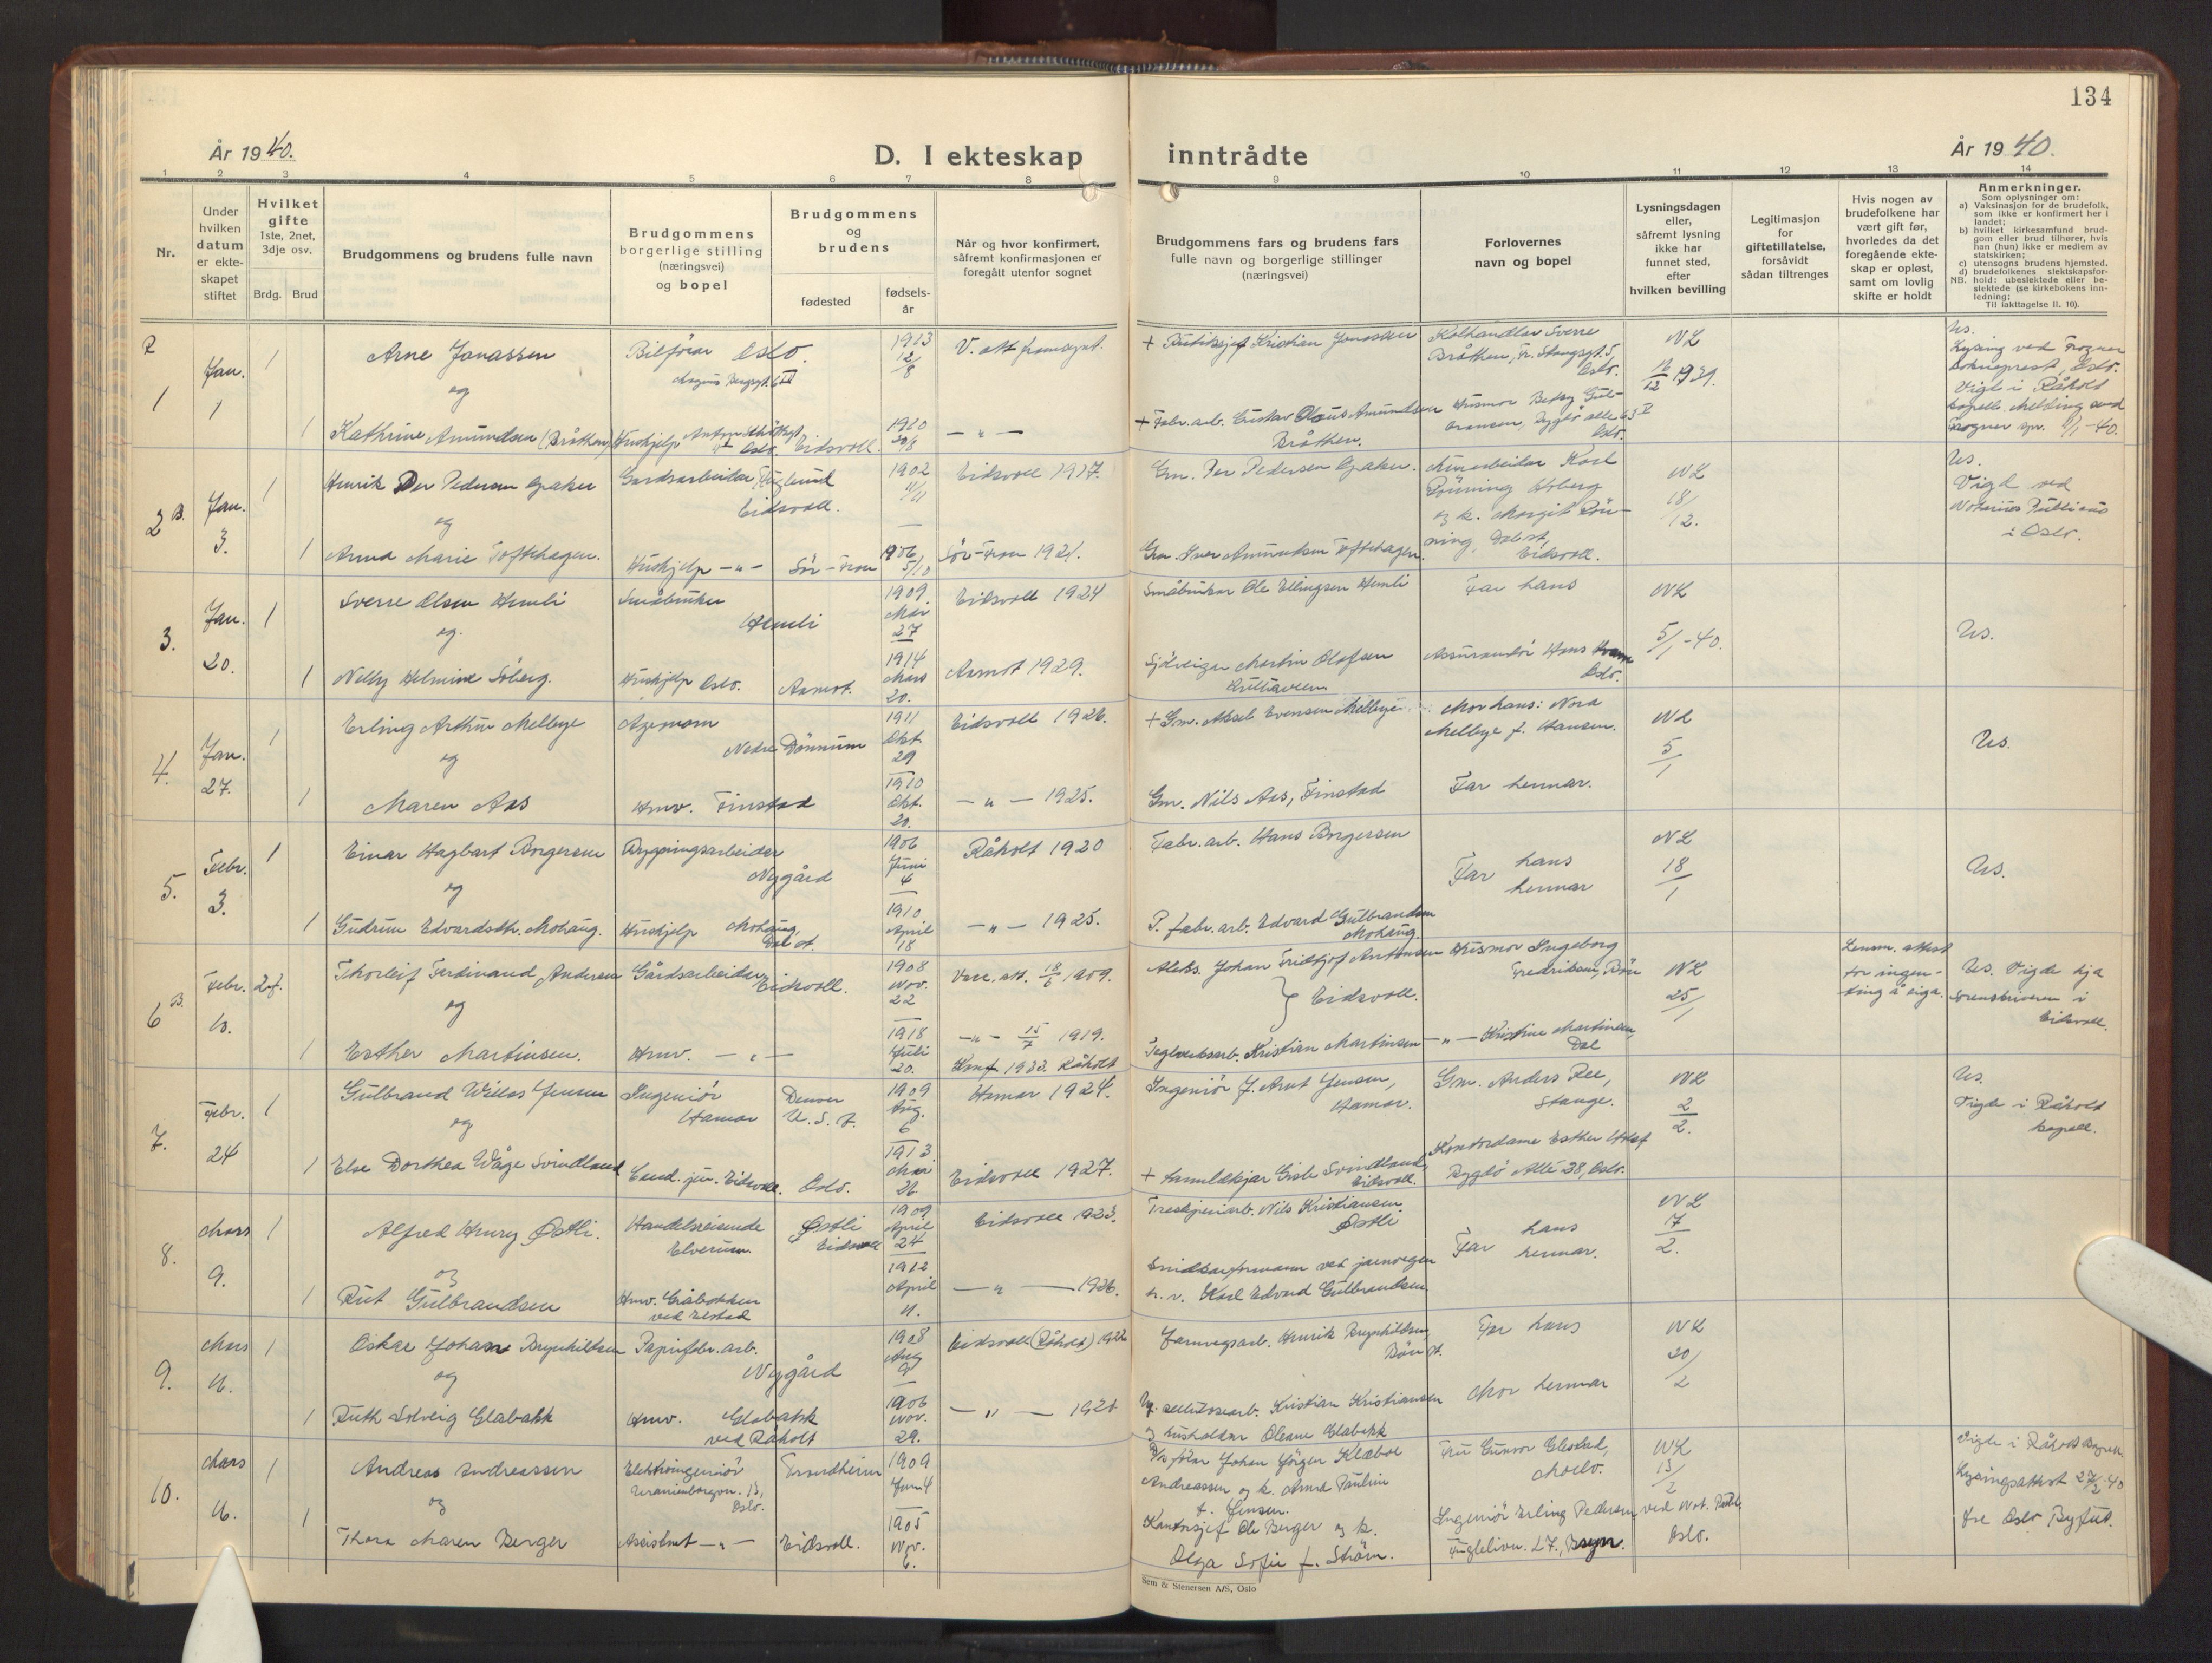 134
År 1940.
D. I ekteskap inntrådte
År 1940.
1 2 3 4 5 6 7 8 9 10 11 12 13 14
Nr.
Under hvilken datum er ekteskapet stiftet
Hvilket gifte 1ste, 2net, 3dje osv.
Brdg. Brud
Brudgommens og brudens fulle navn
Brudgommens borgerlige stilling (næringsvei) og bopel
Brudgommens og brudens
fødested
fødsels-år
Når og hvor konfirmert, såfremt konfirmasjonen er foregått utenfor sognet
Brudgommens fars og brudens fars fulle navn og borgerlige stillinger (næringsvei)
Forlovernes navn og bopel
Lysningsdagen eller, såfremt lysning ikke har funnet sted, efter hvilken bevilling
Legitimasjon for giftetillatelse, forsåvidt sådan tiltrenges
Hvis nogen av brudefolkene har vært gift før, hvorledes da det foregående ekteskap er opløst, samt om lovlig skifte er holdt
Anmerkninger.
Som oplysninger om:
a) Vaksinasjon for de brudefolk, som ikke er konfirmert her i landet;
b) hvilket kirkesamfund brudgom eller brud tilhører, hvis han (hun) ikke er medlem av statskirken;
c) utensogns brudens hjemsted,
d) brudefolkenes slektskapsforhold: ubeslektede eller beslektede (se kirkebokens innledning;
NB.
Til iakttagelse II. 10).
1 Jan. 1 1 Arne Jonassen Bilförar Oslo. 1913 V. att framsynt. + Kristian Jonassen Kolhandlar Sverre Bråthen, Fr. Stangsgt. 5 Oslo. NL 16/12 1939.
Us. Lysing ved Frogner sokneprest, Oslo. Vigd i Råholt kapell. Melding send Frogner spr. 1/1-40.
og
1 Kathrine Amundsen (Bråthen) Hushjelp Oslo. Eidsvoll. 1920 — " — + Fabr.arb. Gustav Olaus Amundsen Bråthen. Husmor Betsy Gulbransen, Bygdö alle 63 V Oslo.
2 B. Jan. 3. 1 Henrik Per Pedersen Opaker Gardsarbeidar Eidsvoll. 1902 11/11 Eidsvoll 1917. Gm. Per Pedersen Opaker. Murarbeidar Karl Rönning og k. Margit Rönning, Eidsvoll. NL 18/12.
Us. Vigd ved Notarius Publicus i Oslo.
og
1 Anna Marie Tofthagen. Hushjelp — " — Sör-Fron 1906 5/10 Sör-Fron 1921. Gm. Iver Amundsen Tofthagen.
3. Jan. 20. 1 Sverre Olsen Hemli Småbruker Hemli 1909 Mai 27 Eidsvoll 1924 Småbruker Ole Ellingsen Hemli Far hans NL 5/1-40. Us.
og
1 Nelly Helmine Söberg. Hushjelp Oslo. Åsmot. 1914 Mars 20. Åsmot 1929. Sjölveigar Martin Olafsen Assurandör Hans Oslo.
4. Jan. 27. 1 Erling Arthur Melbye Agronom Nedre Dönnum 1911 Okt. 29 Eidsvoll 1926. + Gm. Aksel Evensen Melbye Mor hans: Nora Melbye f. Hansen. NL 5/1 Us.
og
1 Maren Aas Hmv. Finstad 1910 Okt. 20. — " — 1925. Gm. Nils Aas, Finstad Far hennar.
5. Febr. 3. 1 Einar Hagbart Borgersen Bygningsarbeider Nygård 1906 Juni 4 Råholt 1920 Fabr.arb. Hans Borgersen Far hans hennar NL 18/1 Us.
og
1 Gudrun Edvardsdtr. Mohaug. Hushjelp Mohaug, Dal st. 1910 April 18 — " — 1925. P. fabr.arb. Edvard Gulbrandsen Mohaug.
6 B. Febr. 10. 2 f. Thorleif Ferdinand Andersen Gårdsarbeider Eidsvoll. 1908 Nov. 22 Vacc. att. 18/6 1909. Johan Fridtjof Antonsen Eidsvoll. Husmor Ingeborg Fredriksen, Bön NL 25/1
Lensm. attest for ingenting å eiga.
Us. Vigde hjå Sorenskriveren i Eidsvoll.
og
1 Esther Martinsen. Hmv. — " — 1918 Juli 20. — " — 15/7 1919. Konf. 1933. Råholt Teglverksarb. Kristian Martinsen — " — Kristine Martinsen, Dal
7. Febr. 24 1 Gulbrand Willas Jensen Ingeniör Hamar Denver U. S. A. 1909 Aug. 6 Hamar 1924. Ingeniör J. Arnt Jensen, Hamar. Gm. Anders Ree, Stange. NL 2/2.
Us. Vigde i Råholt kapell.
og
1 Else Dorthea Wåge Svindland Cand. jur. Eidsvoll. Oslo. 1913 Mai 26. Eidsvoll 1927. + Gisle Svindland, Eidsvoll. Kontordame Esther Holst Bygdö Allé 38, Oslo.
8. Mars 9. 1 Alfred Henry Østli. Handelsreisende Elverum. Østli Eidsvoll 1909 April 24 Eidsvoll 1923. Treskjeriarb. Nils Kristiansen Østli Far hans hennar. NL 7/2.
og
1 Rut Gulbrandsen Hmv. 1912 April 11. — " — 1926. ved jarnvegen Karl Edvard Gulbrandsen
9. Mars 16. 1 Oskar Johan Brynhildsen Papirfabr.arb. Nygård 1908 Aug 9 Eidsvoll (Råholt) 1922 Jarnvegsarb. Henrik Brynhildsen Bön st. Far hans NL 20/2
og
1 Ruth Solveig Glabakk Hmv. Glabakk ved Råholt 1906 Nov. 29. — " — 1921 Kristian Kristiansen og husholder Oleane Glabakk Mor hennar
10. Mars 16. 1 Andreas Andreassen Elektroingeniör Uranienborgvn. 13, Oslo. Trondheim 1909 Juni 4 Johan Jörgen Klæboe Andreassen og k. Anna Pauline f. Jensen. Fru Gunvor Glestad, Moelv. NL 13/2 ved Not. Publ. Oslo.
Vigde i Råholt Lysingsattest 27/2-40 fra Oslo Byfut.
og
1 Thora Maren Berger Assistent — " — Eidsvoll. 1905 Nov. 6. Kontorsjef Ole Berger og k. Olga Sofie f. Ström. Ingeniör Erling Pedersen Fuglelivn. 27, Bryn.
Sem & Stenersen A/S, Oslo